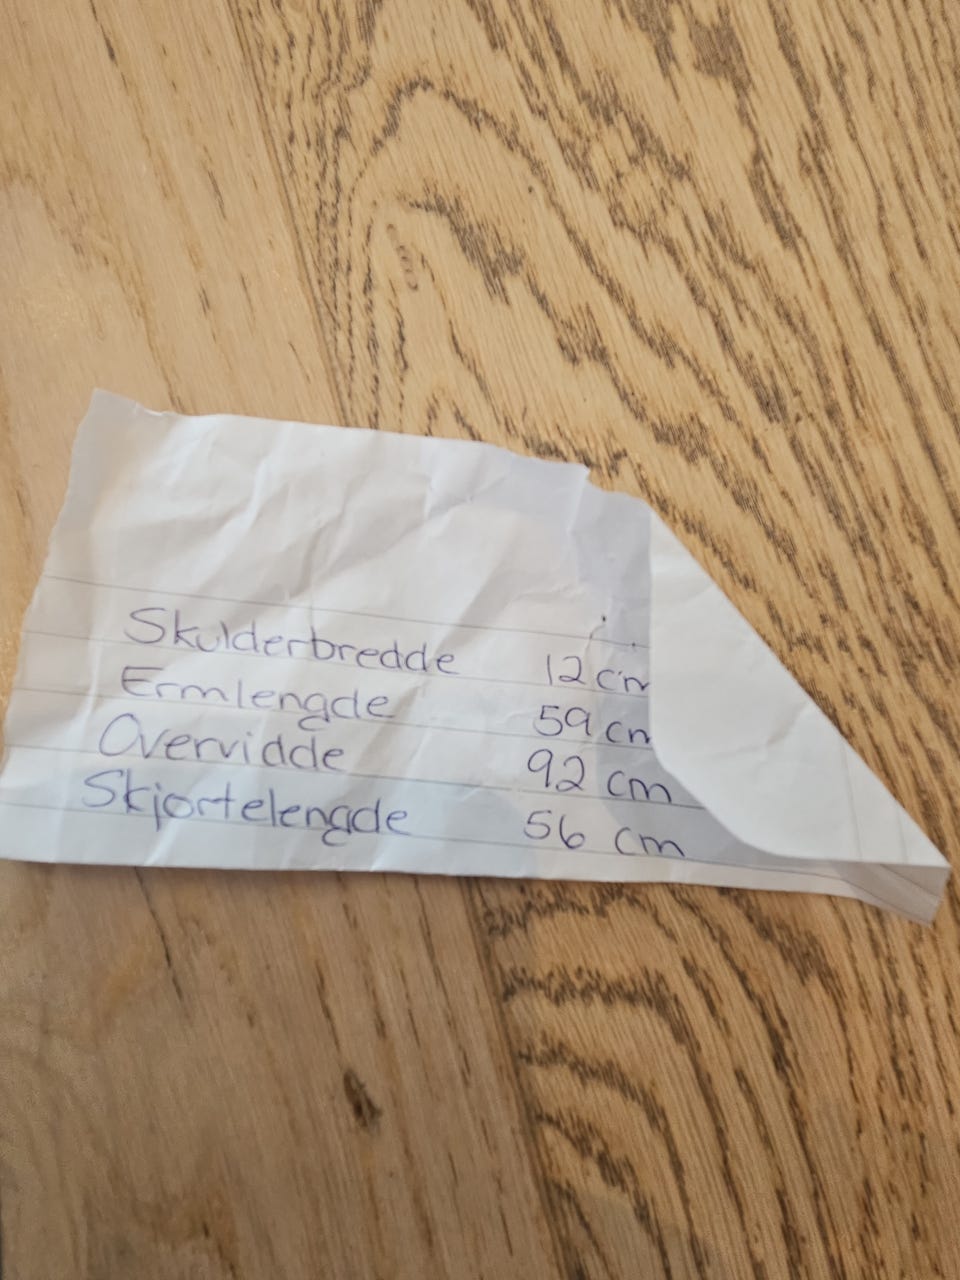 Skulderbredde 12 cm
Ermlengde 59 cm
Overvidde 92 cm
Skjortelengde 56 cm